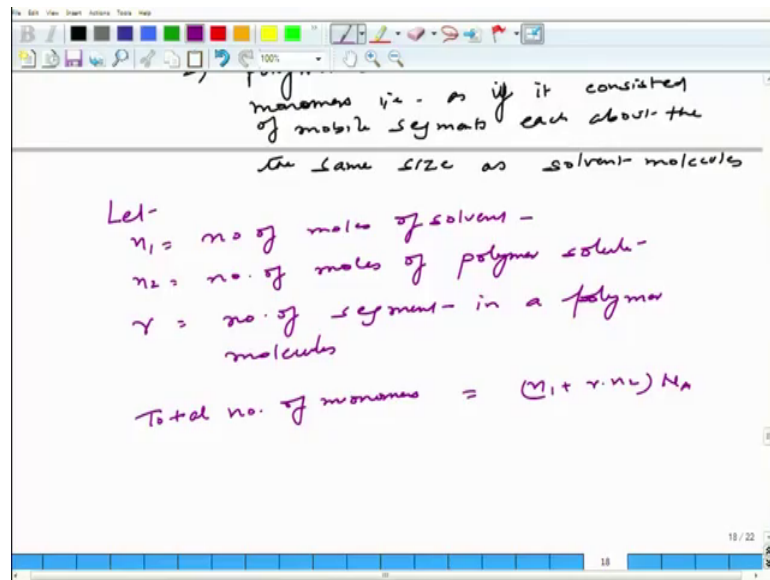 File Edit View Insert Actions Tools Help
100%
monomers i.e. as if it consisted
of mobile segments each about the
the same size as solvent molecules
Let
n1 = no of moles of solvent
n2 = no. of moles of polymer solute
r = no. of segment in a polymer
molecules
Total no. of monomers = (n1 + r.n2) NA
18 / 22
18